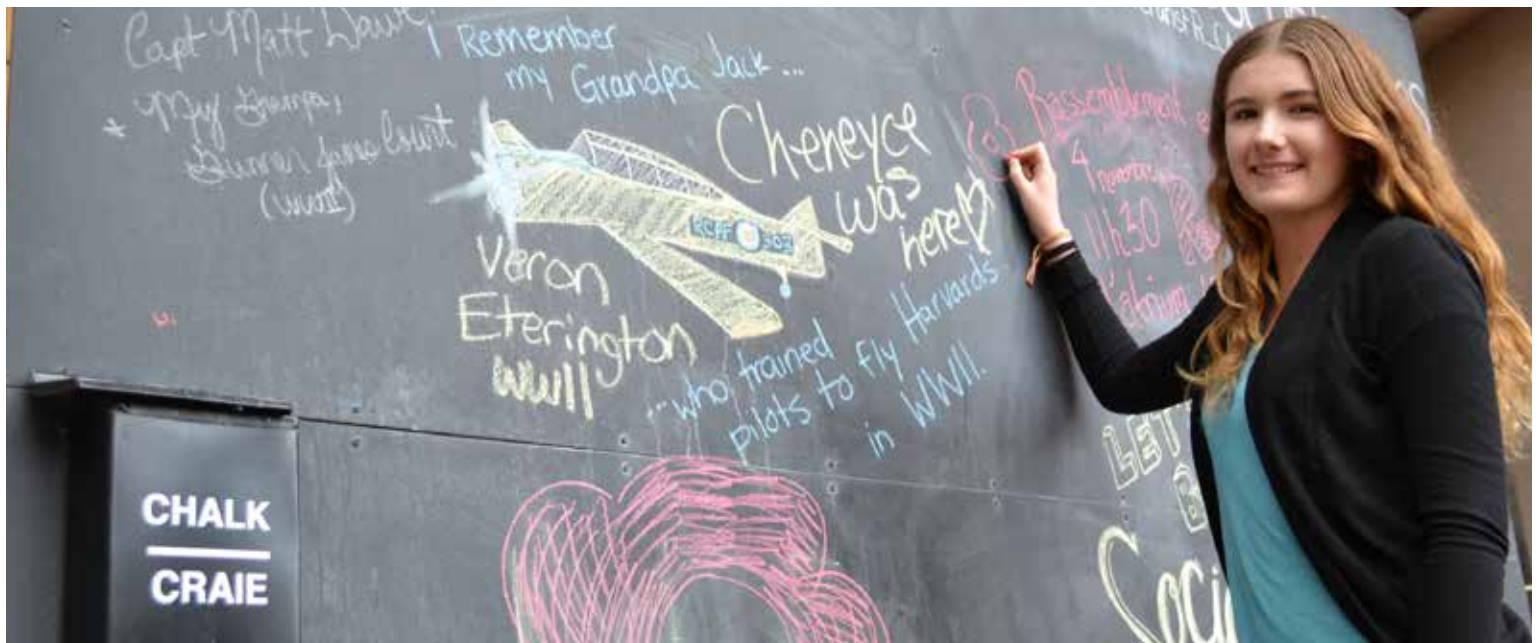 Capt Matt
* My Grampa,
Gunner James
(WWII)
I Remember
my Grandpa Jack ...
RCAF 303
Veron
Eterington
WWII
Cheneyce
was
here
...who trained
pilots to fly Harvards
in WWII.
Rassemblement
4 novembre
11h30
l'atrium
LET
B
Soci
CHALK
CRAIE